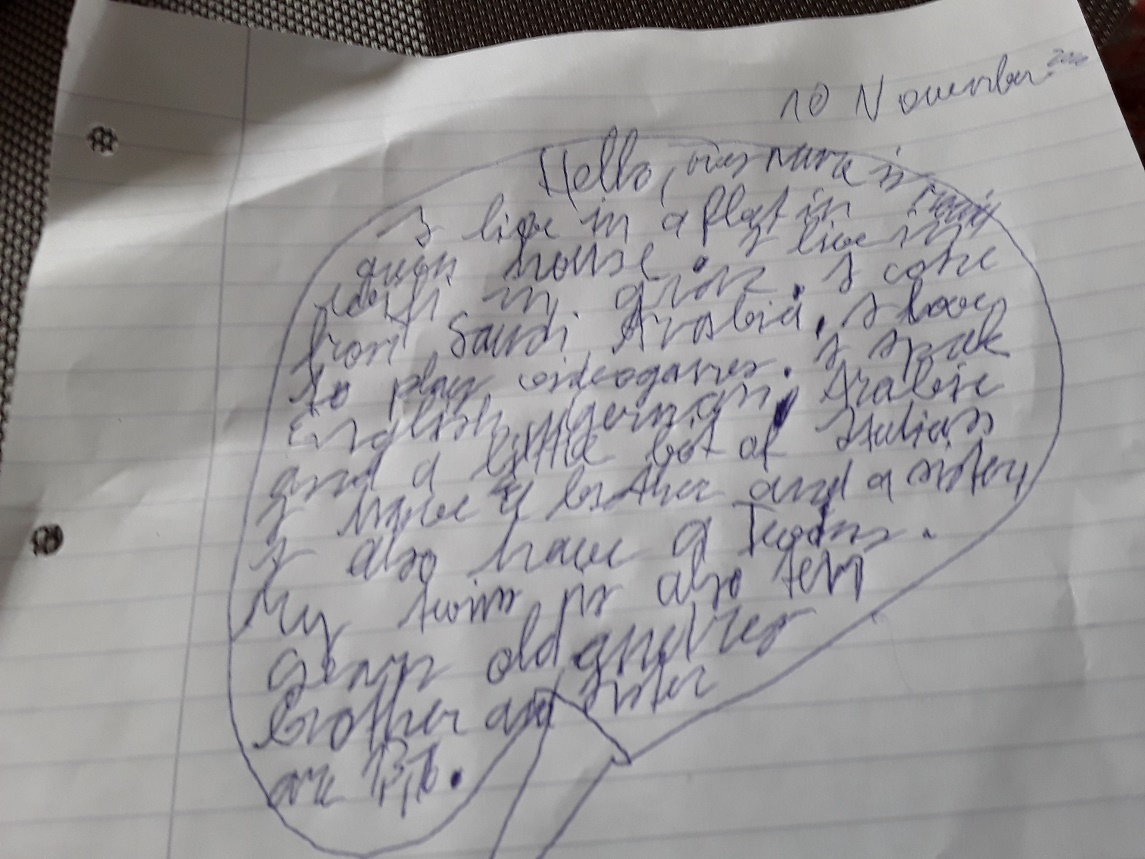 10 November
Hello, my name is
I live in a flat in
house. I live in
in graz. I come
from Saudi Arabia, I love
to play videogames. I speak
English, german, Arabic
and a little bot of Italian
I have a brother and a sister,
I also have a
My twins is also ten
old and her
brother and sister
are 13,16.